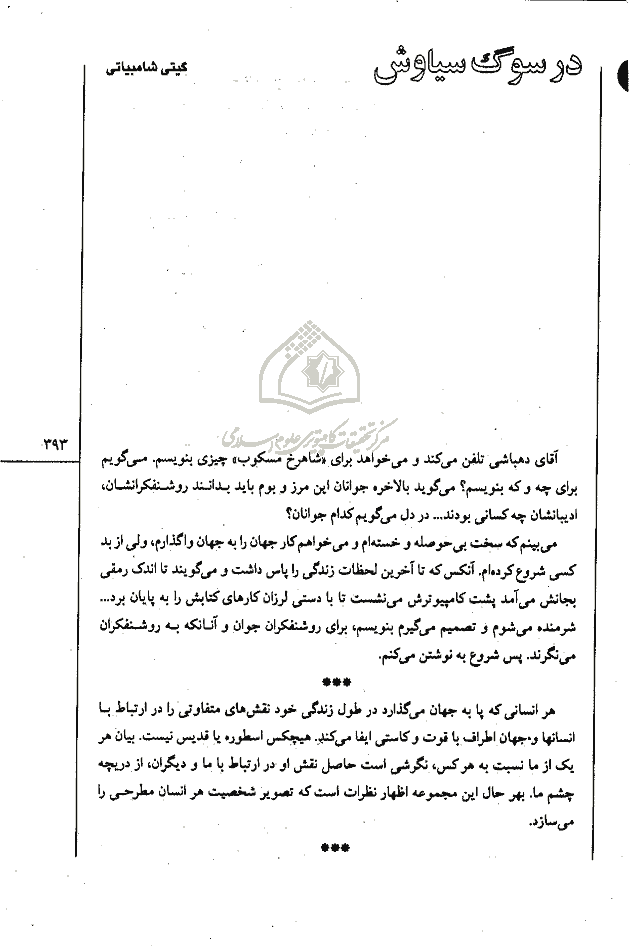 در سوگ سیاوش
گیتی شامبیاتی
مرکز تحقیقات کامپیوتری علوم اسلامی
۳۹۳
آقای دهباشی تلفن می‌کند و می‌خواهد برای «شاهرخ مسکوب» چیزی بنویسم. می‌گویم
برای چه و که بنویسم؟ می‌گوید بالاخره جوانان این مرز و بوم باید بدانند روشنفکرانشان،
ادیبانشان چه کسانی بودند... در دل می‌گویم کدام جوانان؟
می‌بینم که سخت بی‌حوصله و خسته‌ام و می‌خواهم کار جهان را به جهان واگذارم، ولی از بد
کسی شروع کرده‌ام. آنکس که تا آخرین لحظات زندگی را پاس داشت و می‌گویند تا اندک رمقی
بجانش می‌آمد پشت کامپیوترش می‌نشست تا با دستی لرزان کارهای کتابش را به پایان برد...
شرمنده می‌شوم و تصمیم می‌گیرم بنویسم، برای روشنفکران جوان و آنانکه به روشنفکران
می‌نگرند. پس شروع به نوشتن می‌کنم.
***
هر انسانی که پا به جهان می‌گذارد در طول زندگی خود نقش‌های متفاوتی را در ارتباط با
انسانها و جهان اطراف با قوت و کاستی ایفا می‌کند. هیچکس اسطوره یا قدیس نیست. بیان هر
یک از ما نسبت به هر کس، نگرشی است حاصل نقش او در ارتباط با ما و دیگران، از دریچه
چشم ما. بهر حال این مجموعه اظهار نظرات است که تصویر شخصیت هر انسان مطرحی را
می‌سازد.
***